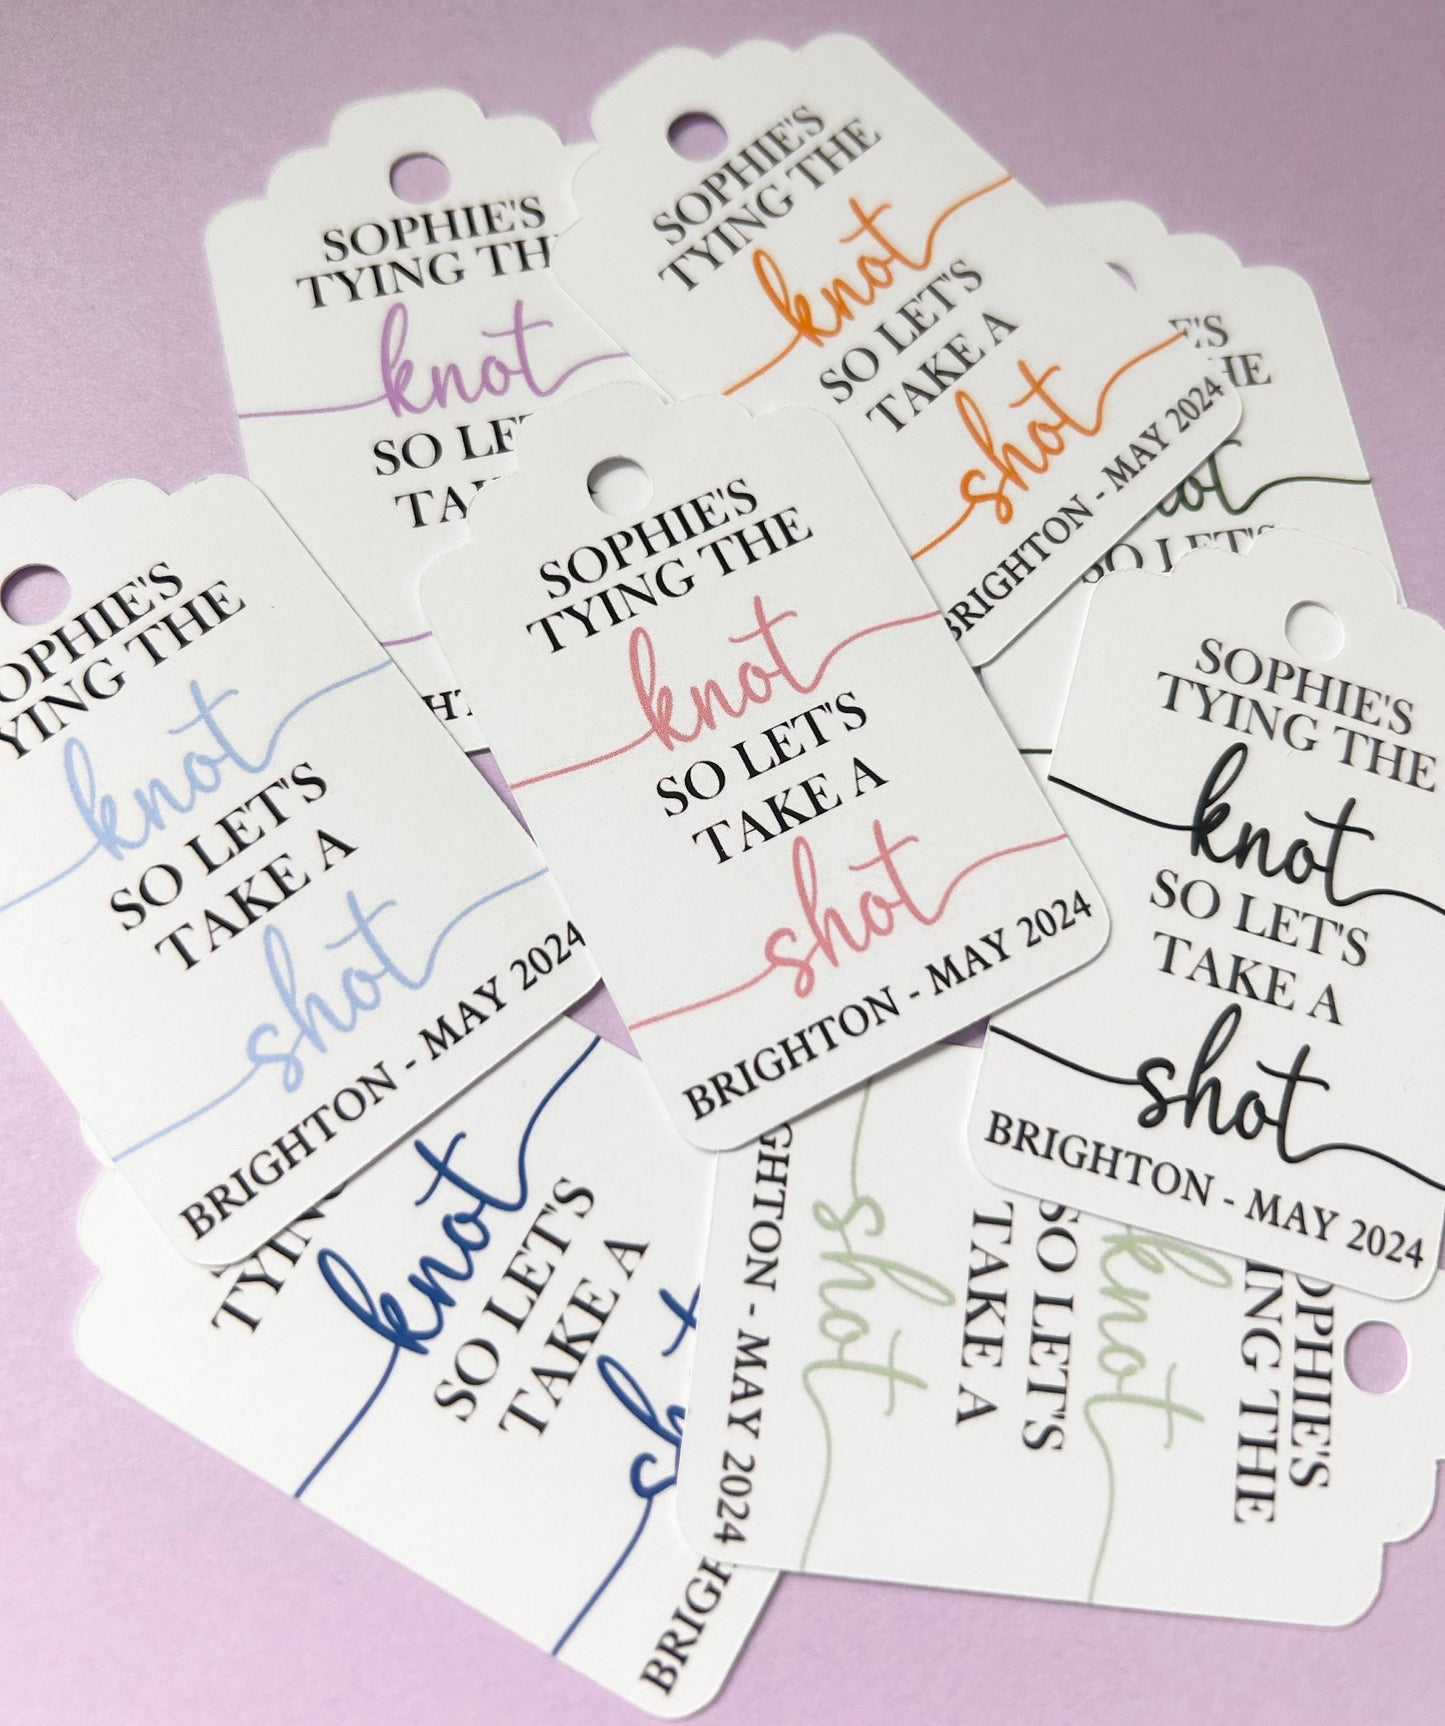 SOPHIE'S
TYING TH
knot
SO LE
TA
SOPHIE'S
TYING THE
knot
SO LET'S
TAKE A
shot
BRIGHTON - MAY 2024
E'S
HE
SO LET'S
OPHIE'S
YING THE
knot
SO LET'S
TAKE A
shot
BRIGHTON - MAY 2024
SOPHIE'S
TYING THE
knot
SO LET'S
TAKE A
shot
BRIGHTON - MAY 2024
SOPHIE'S
TYING THE
knot
SO LET'S
TAKE A
shot
BRIGHTON - MAY 2024
TYIN
knot
SO LET'S
TAKE A
sh
BRIGH
OPHIE'S
ING THE
knot
SO LET'S
TAKE A
shot
GHTON - MAY 2024